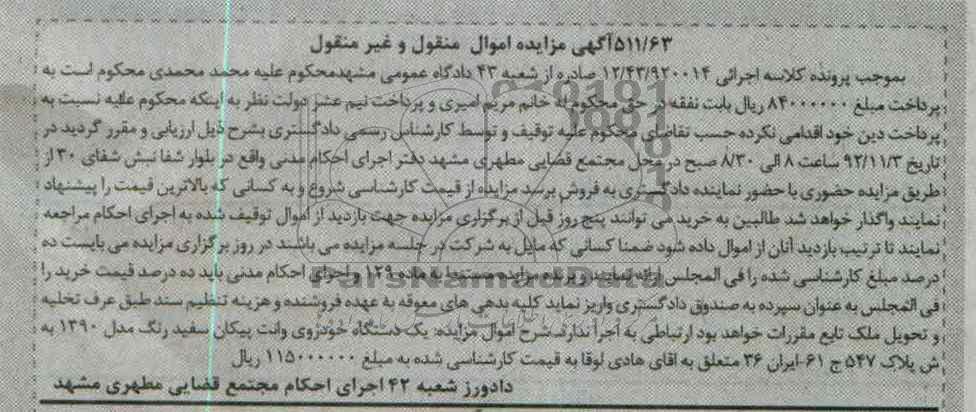 ۵۱۱/۶۳آگهی مزایده اموال منقول و غیر منقول
بموجب پرونده کلاسه اجرائی ۱۲/۴۳/۹۲۰۰۱۴ صادره از شعبه ۴۳ دادگاه عمومی مشهدمحکوم علیه محمد محمدی محکوم است به
پرداخت مبلغ ۸۴۰۰۰۰۰۰ ریال بابت نفقه در حق محکوم له خانم مریم امیری و پرداخت نیم عشر دولت نظر به اینکه محکوم علیه نسبت به
پرداخت دین خود اقدامی نکرده حسب تقاضای محکوم علیه توقیف و توسط کارشناس رسمی دادگستری بشرح ذیل ارزیابی و مقرر گردید در
تاریخ ۹۲/۱۱/۳ ساعت ۸ الی ۸/۳۰ صبح در محل مجتمع قضایی مطهری مشهد دفتر اجرای احکام مدنی واقع در بلوار شفا نبش شفای ۳۰ از
طریق مزایده حضوری با حضور نماینده دادگستری به فروش برسد مزایده از قیمت کارشناسی شروع و به کسانی که بالاترین قیمت را پیشنهاد
نمایند واگذار خواهد شد طالبین به خرید می توانند پنج روز قبل از برگزاری مزایده جهت بازدید از اموال توقیف شده به اجرای احکام مراجعه
نمایند تا ترتیب بازدید آنان از اموال داده شود ضمنا کسانی که مایل به شرکت در جلسه مزایده می باشند در روز برگزاری مزایده می بایست ده
درصد مبلغ کارشناسی شده را فی المجلس ارائه نمایند و برنده مزایده مستندا به ماده ۱۲۹ و اجرای احکام مدنی باید ده درصد قیمت خرید را
فی المجلس به عنوان سپرده به صندوق دادگستری واریز نماید کلیه بدهی های معوقه به عهده فروشنده و هزینه تنظیم سند طبق عرف تخلیه
و تحویل ملک تابع مقررات خواهد بود ارتباطی به اجرا ندارد.شرح اموال مزایده: یک دستگاه خودروی وانت پیکان سفید رنگ مدل ۱۳۹۰ به
ش پلاک ۵۴۷ ج ۶۱-ایران ۳۶ متعلق به اقای هادی لوقا به قیمت کارشناسی شده به مبلغ ۱۱۵۰۰۰۰۰۰ ریال
دادورز شعبه ۴۲ اجرای احکام مجتمع قضایی مطهری مشهد
ParsNamadData